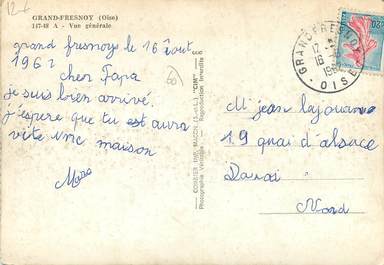 12-6
GRAND-FRESNOY (Oise)
147-48 A - Vue générale
grand fresnoy le 16 août
1962
cher Papa
je suis bien arrivé.
j'espere que tu est aura
vite une maison
COMBIER IMP. MACON (S.-et-L.) "CIM"
Photographie Véritable - Reproduction Interdite
GRANDFRESNOY
17-
16-
196
OISE
M' jean lajouanne
19 quai d'alsace
Douai
Nord